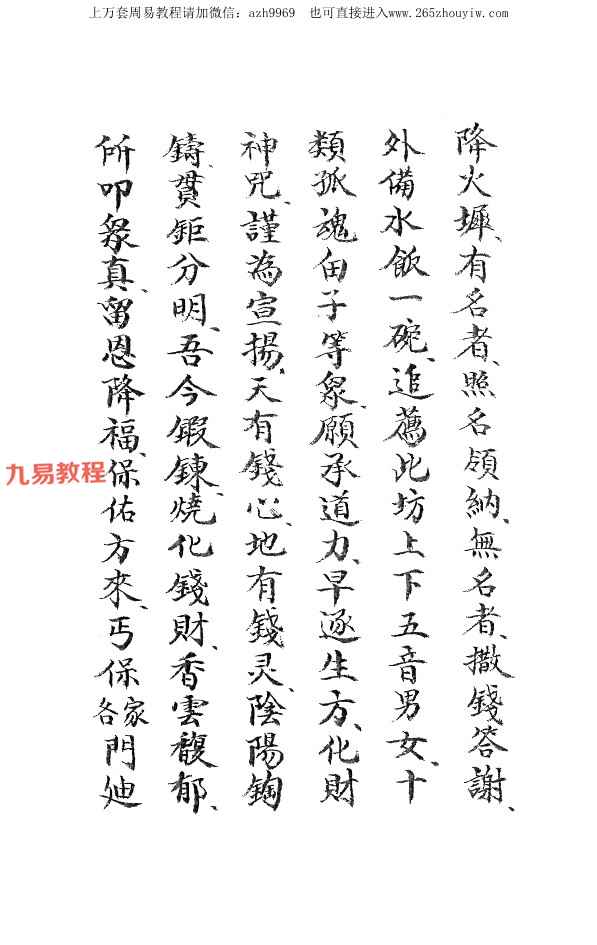 上万套周易教程请加微信：azh9969　也可直接进入www.265zhouyiw.com
降火墀、有名者、照名領納、無名者、撒錢答謝、
外備水飯一碗、追薦此坊上下五音男女、十
類孤魂由子等衆、願承道力、早逐生方、化財
神咒、謹為宣揚、天有錢心、地有錢灵、陰陽鋾
鑄、貫鉅分明、吾今鍛鍊、燒化錢財、香雲馥郁、
所叩衆真、留恩降福、保佑方來、丐保各家門迪
九易教程